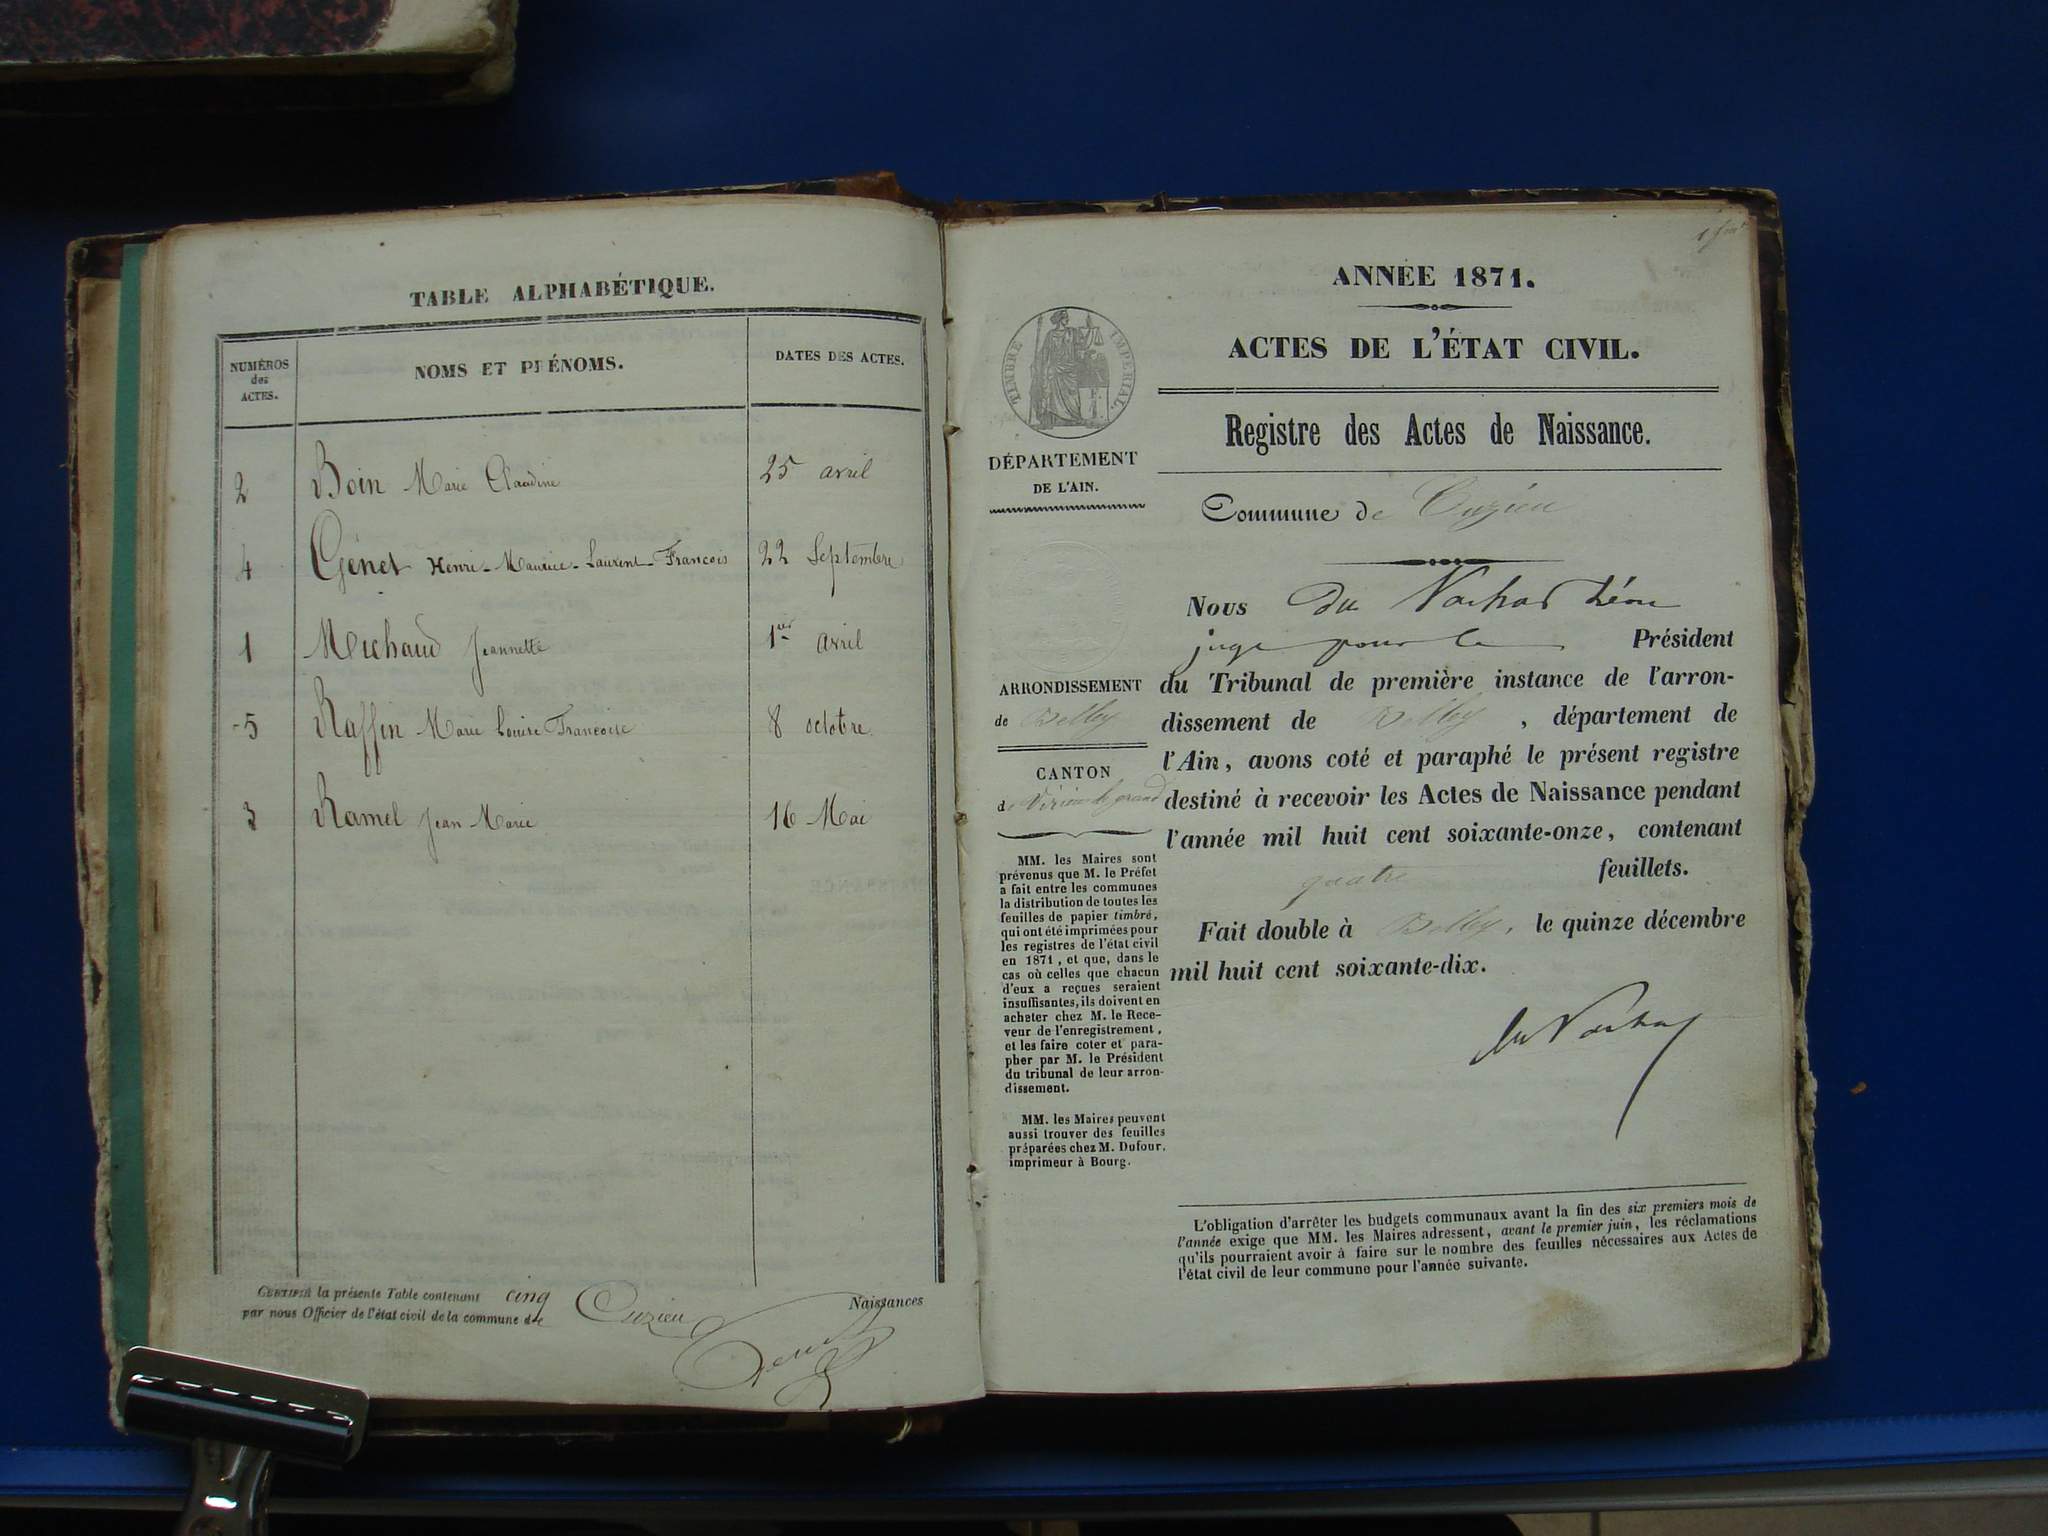 TABLE ALPHABÉTIQUE.
NUMÉROS des ACTES. NOMS ET PRÉNOMS. DATES DES ACTES.
2 Boin Marie Claudine 25 avril
4 Génet Henri-Maurice-Laurent-Francois 22 Septembre
1 Michaud Jeannette 1er avril
5 Raffin Marie Louise Francoise 8 octobre
3 Ramel Jean Marie 16 Mai
CERTIFIÉ la présente Table contenant cinq Naissances
par nous Officier de l'état civil de la commune de Cuzieu
ANNÉE 1871.
ACTES DE L'ÉTAT CIVIL.
Registre des Actes de Naissance.
TIMBRE IMPÉRIAL.
DÉPARTEMENT
DE L'AIN.
Commune de Cuzieu
Nous du Léon
juge pour le Président
du Tribunal de première instance de l'arron-
dissement de Belley, département de
l'Ain, avons coté et paraphé le présent registre
destiné à recevoir les Actes de Naissance pendant
l'année mil huit cent soixante-onze, contenant
quatre feuillets.
Fait double à Belley, le quinze décembre
mil huit cent soixante-dix.
ARRONDISSEMENT
de Belley
CANTON
de Virieu le grand
MM. les Maires sont
prévenus que M. le Préfet
a fait entre les communes
la distribution de toutes les
feuilles de papier timbré,
qui ont été imprimées pour
les registres de l'état civil
en 1871, et que, dans le
cas où celles que chacun
d'eux a reçues seraient
insuffisantes, ils doivent en
acheter chez M. le Rece-
veur de l'enregistrement,
et les faire coter et para-
pher par M. le Président
du tribunal de leur arron-
dissement.
MM. les Maires peuvent
aussi trouver des feuilles
préparées chez M. Dufour,
imprimeur à Bourg.
L'obligation d'arrêter les budgets communaux avant la fin des six premiers mois de
l'année exige que MM. les Maires adressent, avant le premier juin, les réclamations
qu'ils pourraient avoir à faire sur le nombre des feuilles nécessaires aux Actes de
l'état civil de leur commune pour l'année suivante.